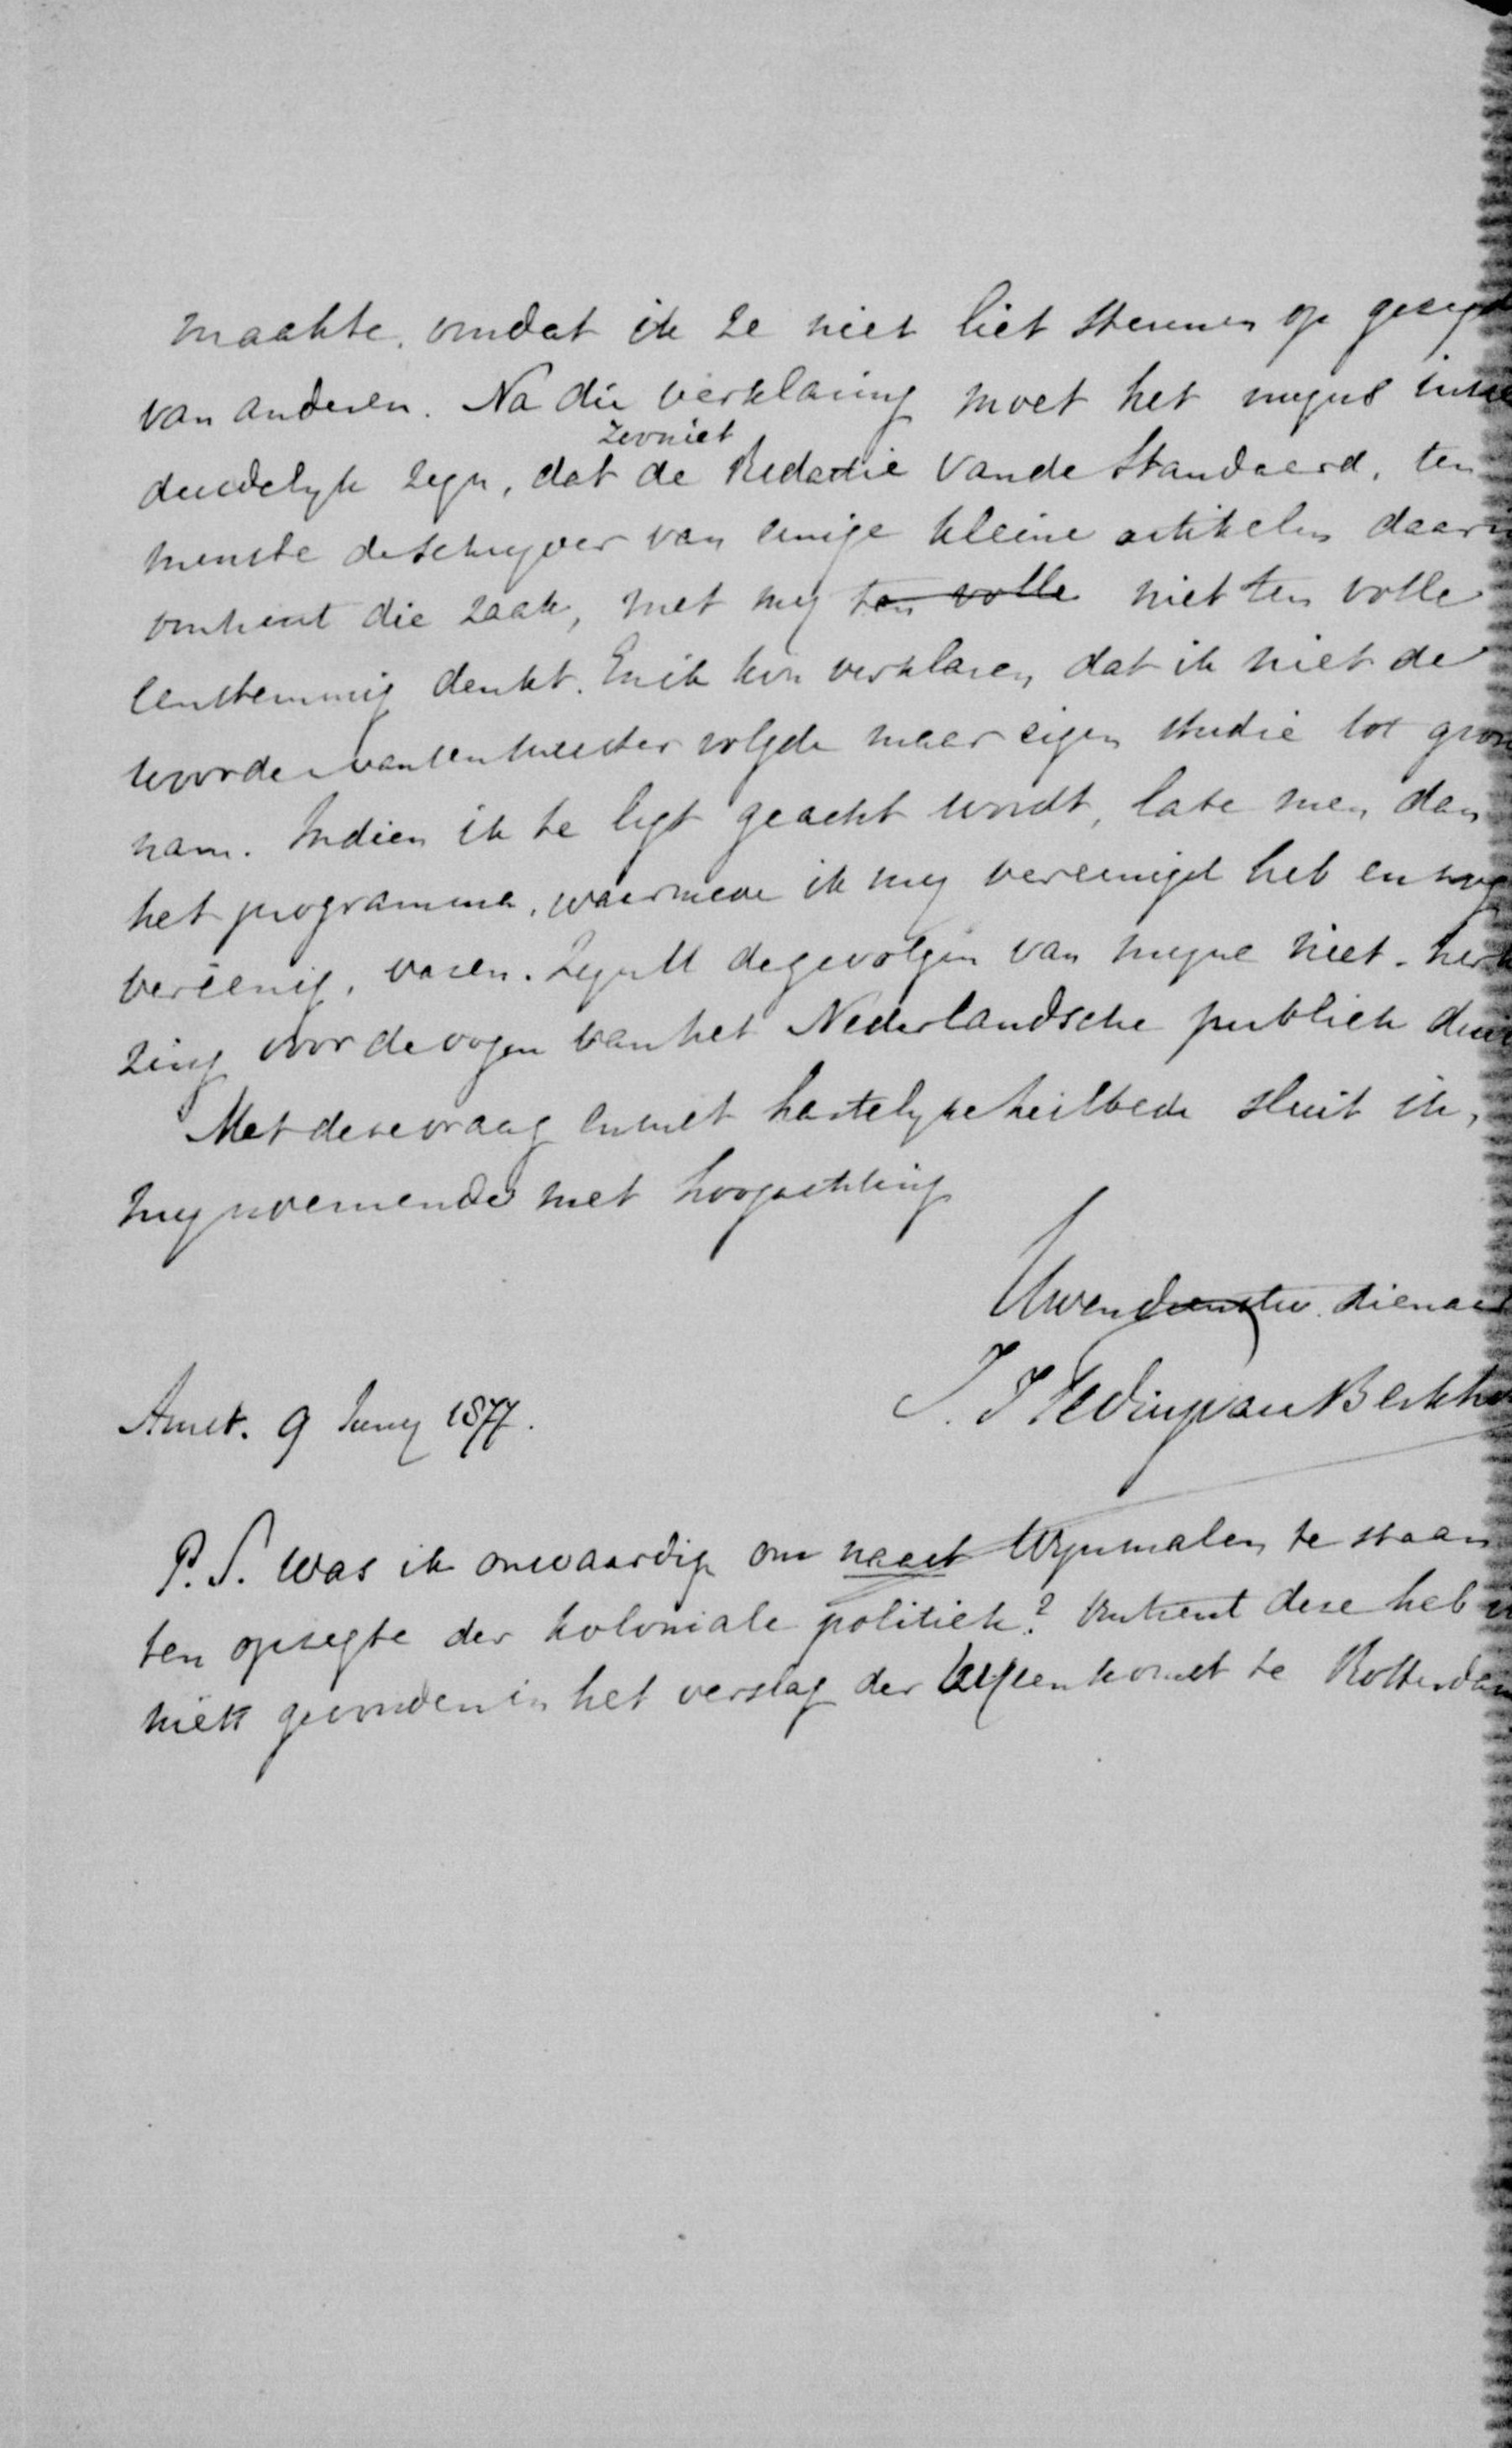 maakte, omdat ik ze niet liet steunen op gezag
van anderen. Na die verklaring moet het mijns
zeoniet
duidelyk zyn, dat de Redactie van de Standaard, ten
minste de schryver van eenige kleine artikelen daar
omtrent die zaak, met my ten volle niet ten volle
eenstemmig denkt. En ik kon verklaren dat ik niet de
woorden van een meester volgde maar eigen studie tot
nam. Indien ik te ligt geacht wordt, late men dan
het programma, waarmede ik my vereenigd heb en nog
vereenig, varen. Zyn de gevolgen van myne niet-
zing voor de oogen van het Nederlandsche publiek
Met deze vraag en met hartelyke heilbede sluit ik,
my noemende met hoogachting
Uwen dienstw. dienaar
J. J. Teding van Berkho
Amst. 9 Juny 1877.
P.S. Was ik onwaardig om naast Wynmalen te staan
ten opzigte der koloniale politiek? Omtrent deze heb
niets gevonden in het verslag der byeenkomst te Rotterdam